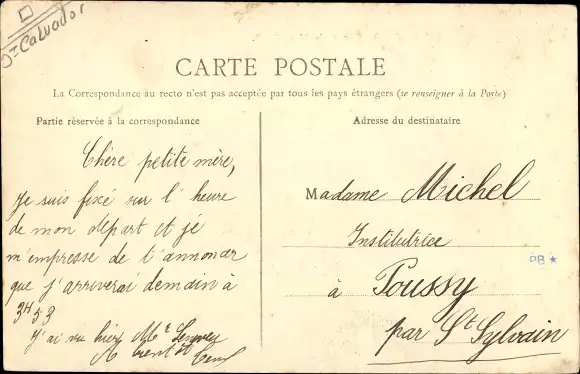 St Calvador
CARTE POSTALE
La Correspondance au recto n'est pas acceptée par tous les pays étrangers (se renseigner à la Poste)
Partie réservée à la correspondance
Chère petite mère,
Je suis fixé sur l'heure
de mon départ et je
m'empresse de t'annoncer
que j'arriverai demain à
3H53
J'ai vu hier Me
Adresse du destinataire
Madame Michel
Institutrice
à Poussy
par St Sylvain
PB ★